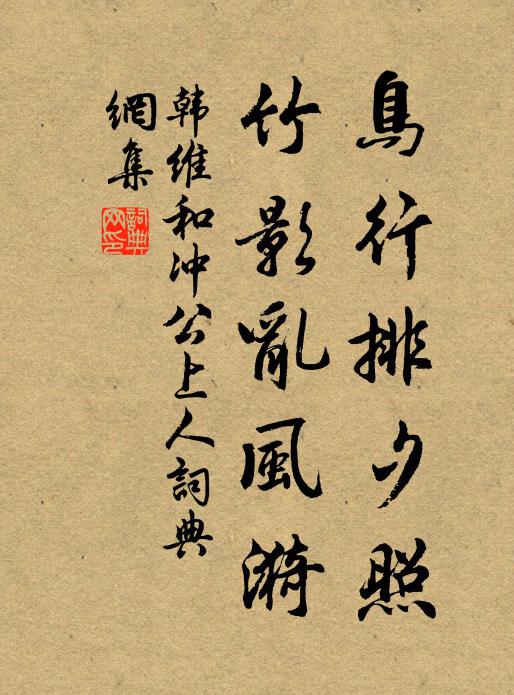 鳥行排夕照
竹影亂風漪
韩維和冲公上人詞典
網集
詞典
网印